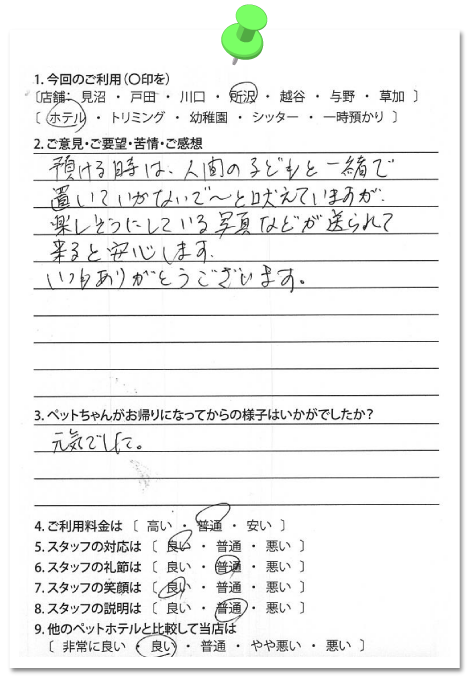 1. 今回のご利用(〇印を)
〔店舗: 見沼 ・ 戸田 ・ 川口 ・ 所沢 ・ 越谷 ・ 与野 ・ 草加 〕
〔 ホテル ・ トリミング ・ 幼稚園 ・ シッター ・ 一時預かり 〕
2. ご意見・ご要望・苦情・ご感想
預ける時は、人間の子どもと一緒で
置いていかないで〜と吠えていますが、
楽しそうにしている写真などが送られて
来ると安心します。
いつもありがとうございます。
3. ペットちゃんがお帰りになってからの様子はいかがでしたか?
元気でした。
4. ご利用料金は 〔 高い ・ 普通 ・ 安い 〕
5. スタッフの対応は 〔 良い ・ 普通 ・ 悪い 〕
6. スタッフの礼節は 〔 良い ・ 普通 ・ 悪い 〕
7. スタッフの笑顔は 〔 良い ・ 普通 ・ 悪い 〕
8. スタッフの説明は 〔 良い ・ 普通 ・ 悪い 〕
9. 他のペットホテルと比較して当店は
〔 非常に良い ・ 良い ・ 普通 ・ やや悪い ・ 悪い 〕